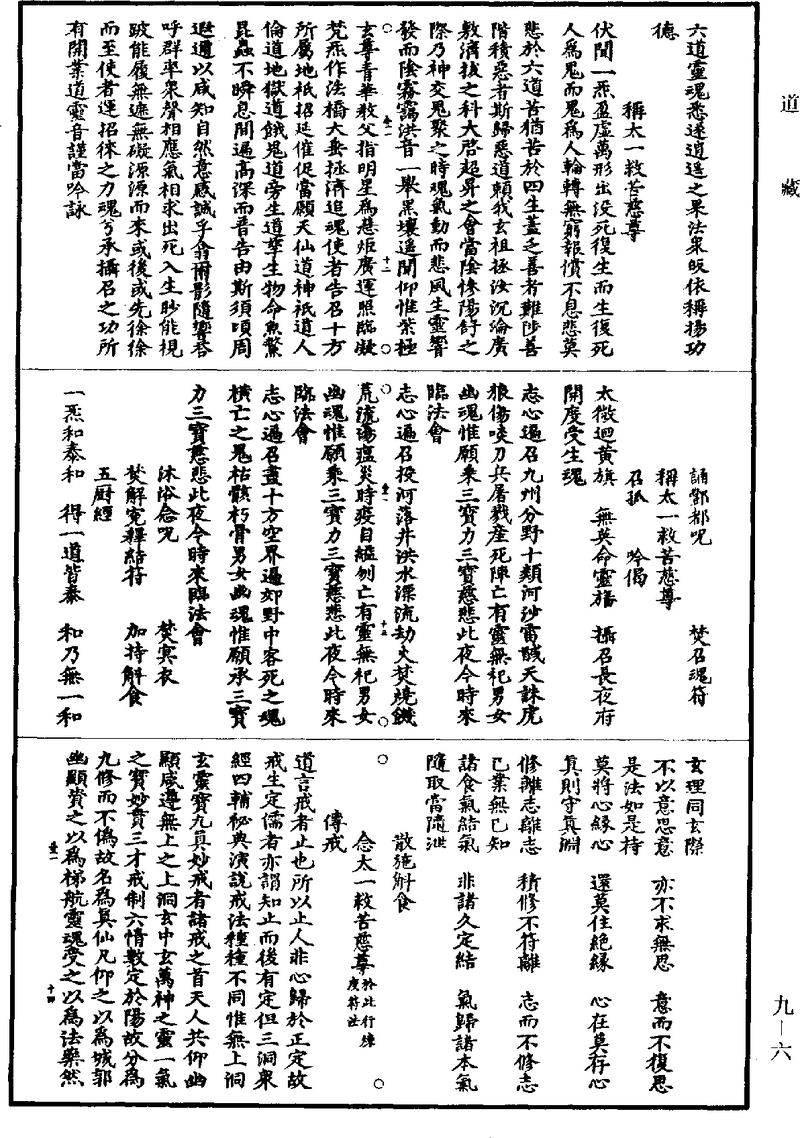 道藏
六道靈魂悉遂逍遙之果法眾皈依稱揚功
德
稱太一救苦慈尊
伏聞一炁盈虛萬形出沒死復生而生復死
人為鬼而鬼為人輪轉無窮報償不息悲莫
悲於六道苦猶苦於四生蓋乏善者難陟善
階積惡者斯歸惡道賴我玄祖拯汝沉淪廣
敷濟拔之科大啓超昇之會當陰慘陽舒之
際乃神交鬼聚之時魂氣動而悲風生靈響
發而陰霧靄洪音一舉黑壤遥聞仰惟紫極
玄尊青華教父指明星為慈炬廣運照臨凝
梵炁作法橋大垂拯濟追魂使者告召十方
所屬地祇招延催促當願天仙道神祇道人
倫道地獄道餓鬼道旁生道孳生物命魚鱉
昆蟲不瞬息間遍高深而普告由斯須頃周
遐邇以咸知自然意感誠孚翕爾影隨響答
呼群率衆聲相應氣相求出死入生眇能視
跛能履無遮無礙源源而來或後或先徐徐
而至使者運招徠之力魂兮承攝召之功所
有開業道靈音謹當吟詠
誦酆都呪　焚召魂符
稱太一救苦慈尊
召孤　吟偈
太微迴黃旗　無英命靈旛　攝召長夜府
開度受生魂
志心遍召九州分野十類河沙雷誠天誅虎
狼傷啖刀兵屠戮產死陣亡有靈無祀男女
幽魂惟願乘三寶力三寶慈悲此夜今時來
臨法會
志心遍召投河落井洪水漂流劫火焚燒饑
荒流蕩瘟災時疫自縊刎亡有靈無祀男女
幽魂惟願乘三寶力三寶慈悲此夜今時來
臨法會
志心遍召盡十方空界遍郊野中客死之魂
橫亡之鬼枯骸朽骨男女幽魂惟願承三寶
力三寶慈悲此夜今時來臨法會
沐浴念呪　焚冥衣
焚解寃釋結符　加持斛食
五厨經
一炁和泰和　得一道皆泰　和乃無一和
玄理同玄際
不以意思意　亦不求無思　意而不復思
是法如是持
莫將心緣心　還莫住絕緣　心在莫存心
真則守真淵
修離志離志　積修不符離　志而不修志
已業無已知
諸食氣結氣　非諸久定結　氣歸諸本氣
隨取當隨泄
散施斛食
念太一救苦慈尊於此行煉度符法
傳戒
道言戒者止也所以止人非心歸於正定故
戒生定儒者亦謂知止而後有定但三洞衆
經四輔秘典演說戒法種種不同惟無上洞
玄靈寶九真妙戒者諸戒之首天人共仰幽
顯咸遵無上之上洞玄中玄萬神之靈一氣
之寶妙貫三才戒制六情數定於陽故分為
九修而不偽故名為真仙凡仰之以為城郭
幽顯賫之以為梯航靈魂受之以為法橥然
九－六